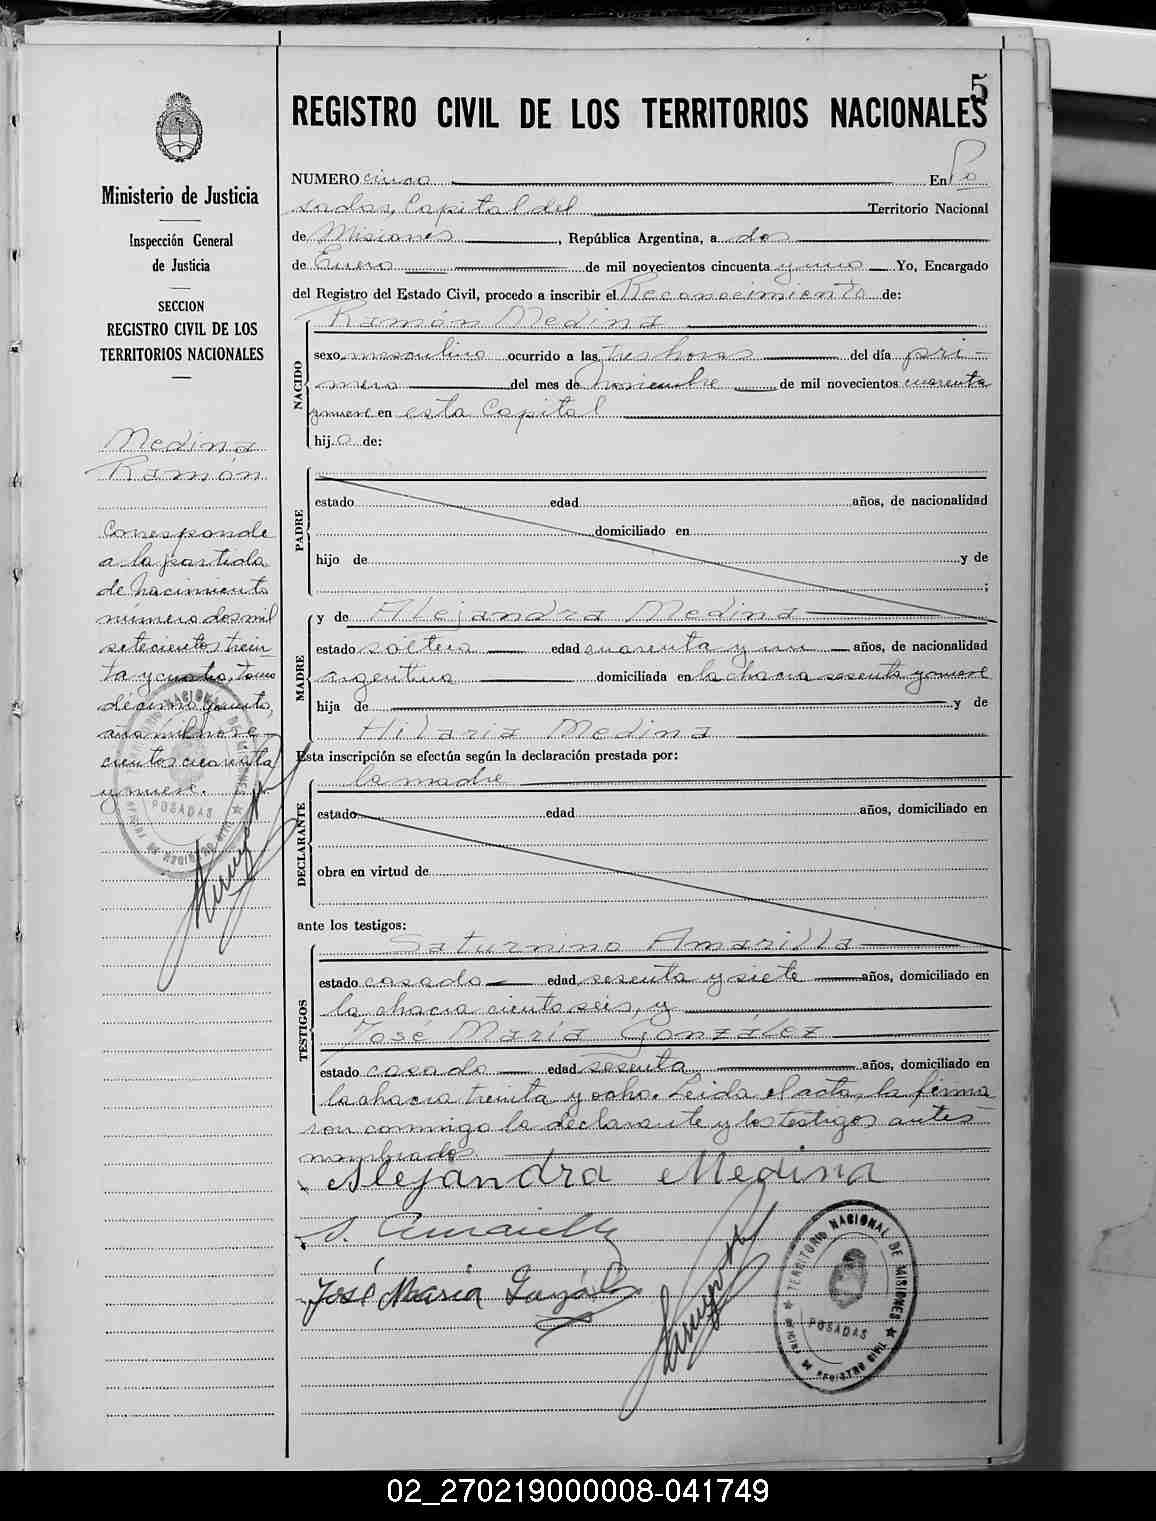 5
REGISTRO CIVIL DE LOS TERRITORIOS NACIONALES
Ministerio de Justicia
Inspección General
de Justicia
SECCION
REGISTRO CIVIL DE LOS
TERRITORIOS NACIONALES
Medina
Ramón
Corresponde
a la partida
de nacimiento
número dos mil
setecientos trein
ta y cuatro, tomo
décimo
año mil nove
cientos cuarenta
y nueve.
TERRITORIO NACIONAL DE MISIONES
POSADAS
OFICINA DE REGISTRO CIVIL
NUMERO cinco En Po
sadas, Capital del Territorio Nacional
de Misiones, República Argentina, a dos
de Enero de mil novecientos cincuenta y uno Yo, Encargado
del Registro del Estado Civil, procedo a inscribir el Reconocimiento de:
Ramón Medina
NACIDO
sexo masculino ocurrido a las tres horas del día pri-
mero del mes de Noviembre de mil novecientos cuarenta
y nueve en esta Capital
hij o de:
PADRE
estado edad años, de nacionalidad
domiciliado en
hijo de y de
;
MADRE
y de Alejandra Medina
estado soltera edad cuarenta y un años, de nacionalidad
argentina domiciliada en la chacra sesenta y nueve
hija de y de
Hilaria Medina
Esta inscripción se efectúa según la declaración prestada por:
la madre
DECLARANTE
estado edad años, domiciliado en
obra en virtud de
ante los testigos:
TESTIGOS
Saturnino Amarilla
estado casado edad sesenta y siete años, domiciliado en
la chacra ciento seis, y
José María González
estado casado edad sesenta años, domiciliado en
la chacra treinta y ocho. Leída el acta, la firma
ron conmigo la declarante y los testigos antes
nombrados.
Alejandra Medina
S. Amarilla
José María González
TERRITORIO NACIONAL DE MISIONES
POSADAS
OFICINA DE REGISTRO CIVIL
02_270219000008-041749